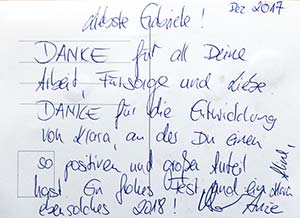 Dez 2017
Liebste Gabriele!
DANKE für all Deine
Arbeit, Fürsorge und Liebe.
DANKE für die Entwicklung
von Klara, an der Du einen
so positiven und großen Anteil
hast. Ein frohes Fest und ein
ebensolches 2018!